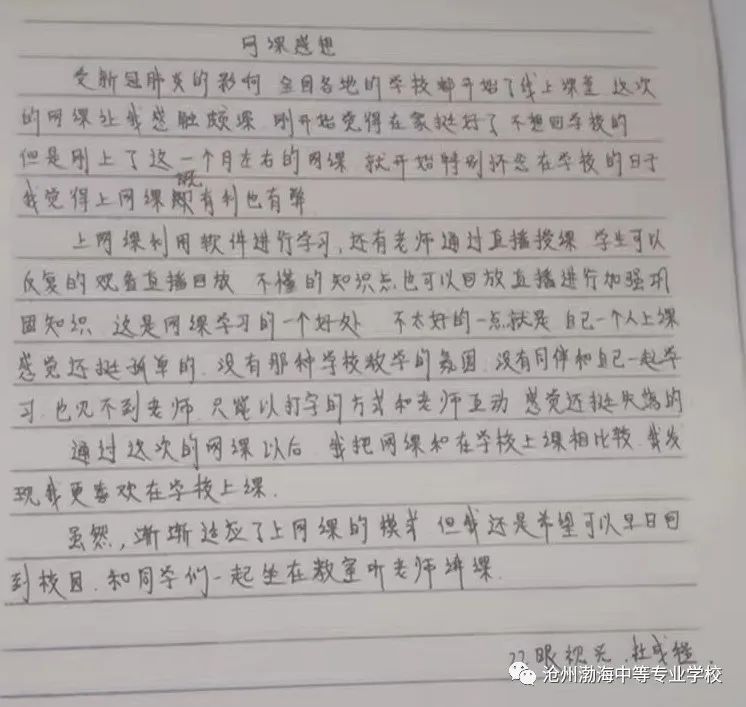 网课感想
受新冠肺炎的影响 全国各地的学校都开始了线上课堂 这次
的网课让我感触颇深 刚开始觉得在家挺好了 不想回学校的
但是刚上了这一个月左右的网课 就开始特别怀念在学校的日子
我觉得上网课既有利也有弊
上网课利用软件进行学习,还有老师通过直播授课 学生可以
反复的观看直播回放 不懂的知识点也可以回放直播进行加强巩
固知识 这是网课学习的一个好处 不太好的一点就是 自己一个人上课
感觉还挺孤单的.没有那种学校教学的氛围.没有同伴和自己一起学
习.也见不到老师.只能以打字的方式和老师互动 感觉还挺失落的
通过这次的网课以后.我把网课和在学校上课相比较.我发
现我更喜欢在学校上课.
虽然,渐渐适应了上网课的模式 但我还是希望可以早日回
到校园.和同学们一起坐在教室听老师讲课.
眼视光.杜
沧州渤海中等专业学校